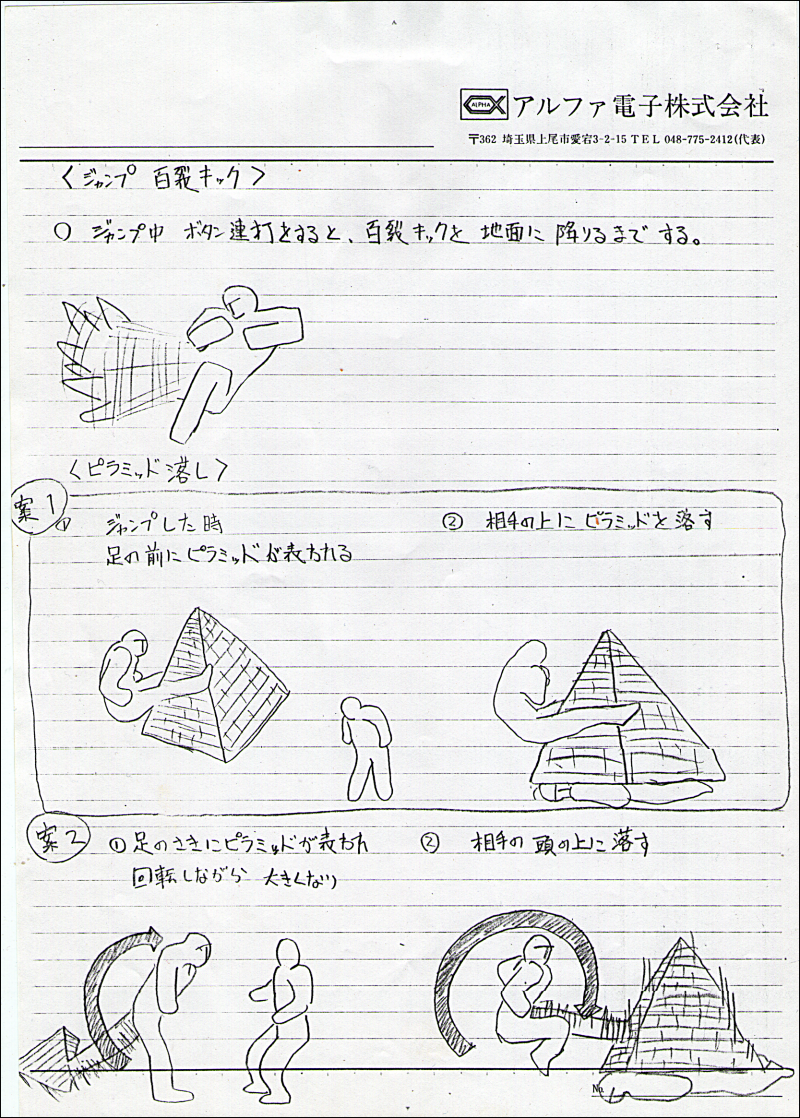 ALPHA アルファ電子株式会社
〒362 埼玉県上尾市愛宕3-2-15 TEL 048-775-2412(代表)
〈ジャンプ 百裂キック〉
○ ジャンプ中 ボタン連打をすると、百裂キックを 地面に 降りるまで する。
〈ピラミッド落し〉
案1
① ジャンプした時
足の前にピラミッドが表われる
② 相手の上にピラミッドを落す
案2
① 足のさきにピラミッドが表われ
回転しながら 大きくなり
② 相手の 頭の上に落す
No.